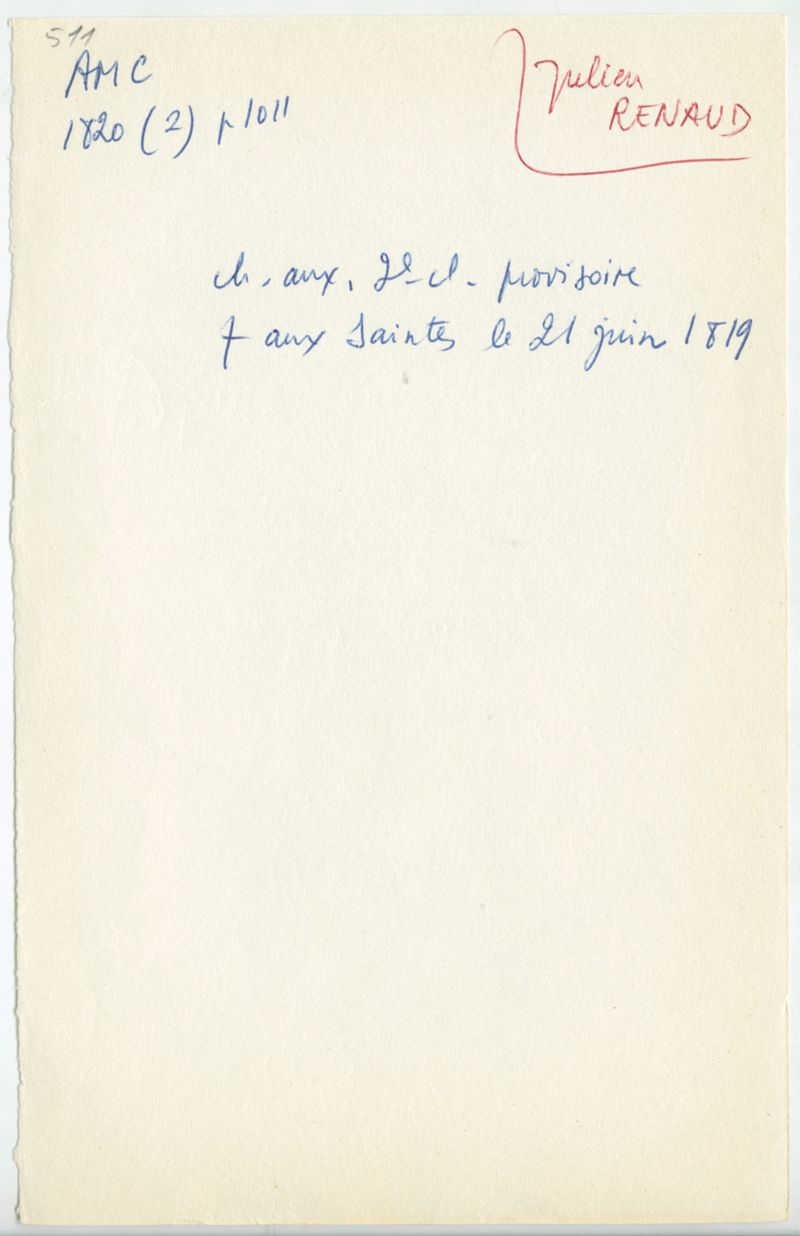 511
AMC
1820 (2) p 1011
Julien
RENAUD
ch. aux. 2e cl. provisoire
† aux Saintes le 21 juin 1819